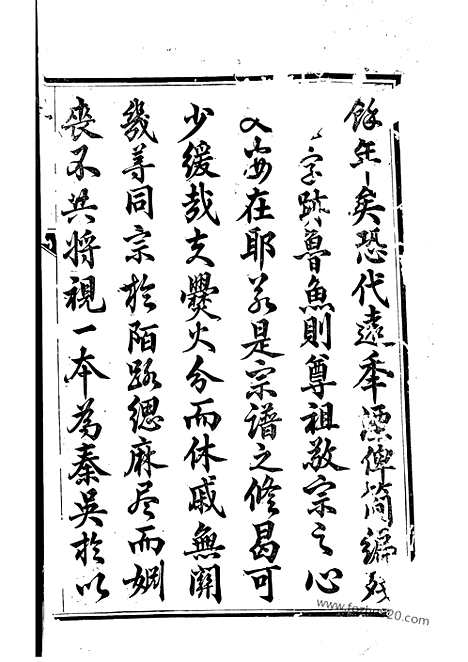 餘年矣恐代遠年湮俾簡編殘
字跡魯魚則尊祖敬宗之心
安在耶若是宗譜之修曷可
少緩哉支爨火分而休戚無關
幾等同宗於陌路緦麻尽而婣
喪不共將視一本為秦吳於以